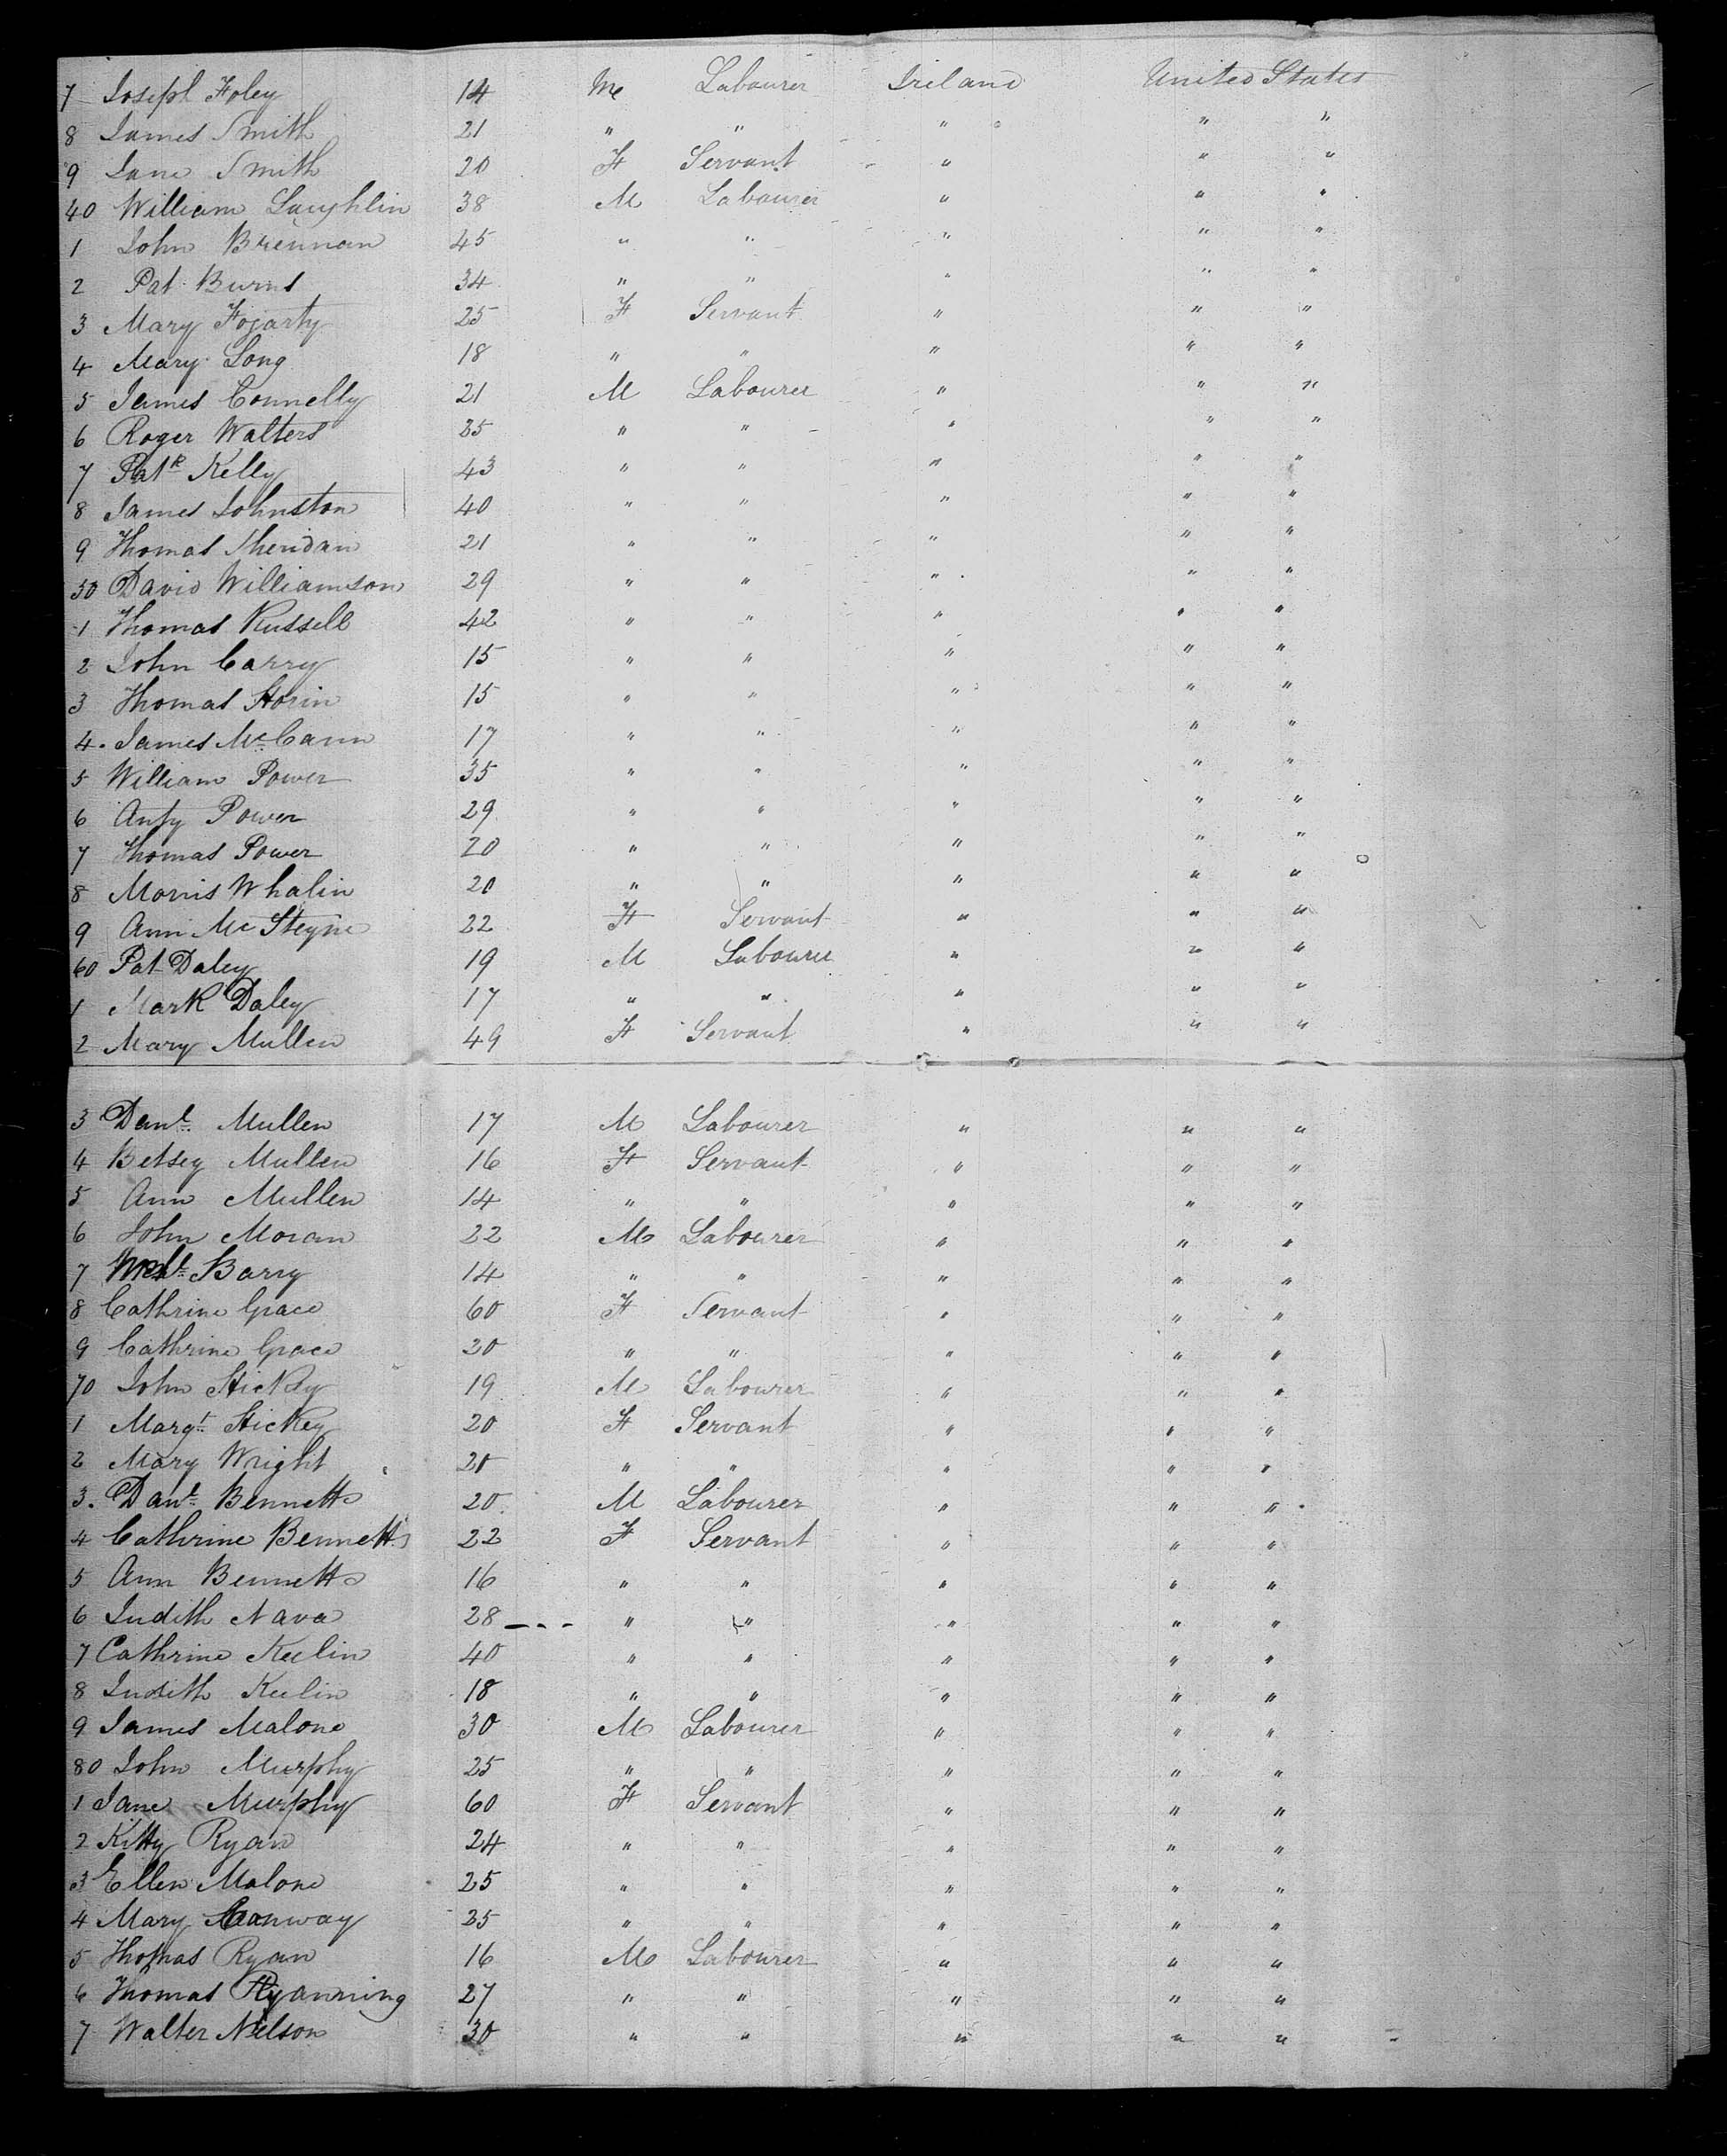 7 Joseph Foley 14 M Labourer Ireland United States
8 James Smith 21 " " " " "
9 Jane Smith 20 F Servant " " "
40 William Laughlin 38 M Labourer " " "
1 John Brennan 45 " " " " "
2 Pat Burns 34 " " " " "
3 Mary Fogarty 25 F Servant " " "
4 Mary Long 18 " " " " "
5 James Connelly 21 M Labourer " " "
6 Roger Walters 35 " " " " "
7 Patk Kelly 43 " " " " "
8 James Johnston 40 " " " " "
9 Thomas Sheridan 21 " " " " "
50 David Williamson 29 " " " " "
1 Thomas Russell 42 " " " " "
2 John Carry 15 " " " " "
3 Thomas 15 " " " " "
4 James McCann 17 " " " " "
5 William Power 35 " " " " "
6 Power 29 " " " " "
7 Thomas Power 20 " " " " "
8 Morris Whalin 20 " " " " "
9 Ann Mc Steyne 22 F Servant " " "
60 Pat Daley 19 M Labourer " " "
1 Mark Daley 17 " " " " "
2 Mary Mullen 49 F Servant " " "
3 Danl Mullen 17 M Labourer " " "
4 Betsey Mullen 16 F Servant " " "
5 Ann Mullen 14 " " " " "
6 John Moran 22 M Labourer " " "
7 Barry 14 " " " " "
8 Cathrine Grace 60 F Servant " " "
9 Cathrine Grace 20 " " " " "
70 John Hickey 19 M Labourer " " "
1 Margt Hickey 20 F Servant " " "
2 Mary Wright 20 " " " " "
3 Danl Bennett 20 M Labourer " " "
4 Cathrine Bennett 22 F Servant " " "
5 Ann Bennett 16 " " " " "
6 Judith Nava 28 " " " " "
7 Cathrine Keelin 40 " " " " "
8 Judith Keelin 18 " " " " "
9 James Malone 30 M Labourer " " "
80 John Murphy 25 " " " " "
1 Jane Murphy 60 F Servant " " "
2 Kitty Ryan 24 " " " " "
3 Ellen Malone 25 " " " " "
4 Mary Conway 35 " " " " "
5 Thomas Ryan 16 M Labourer " " "
6 Thomas 27 " " " " "
7 Walter Nelson 30 " " " " "